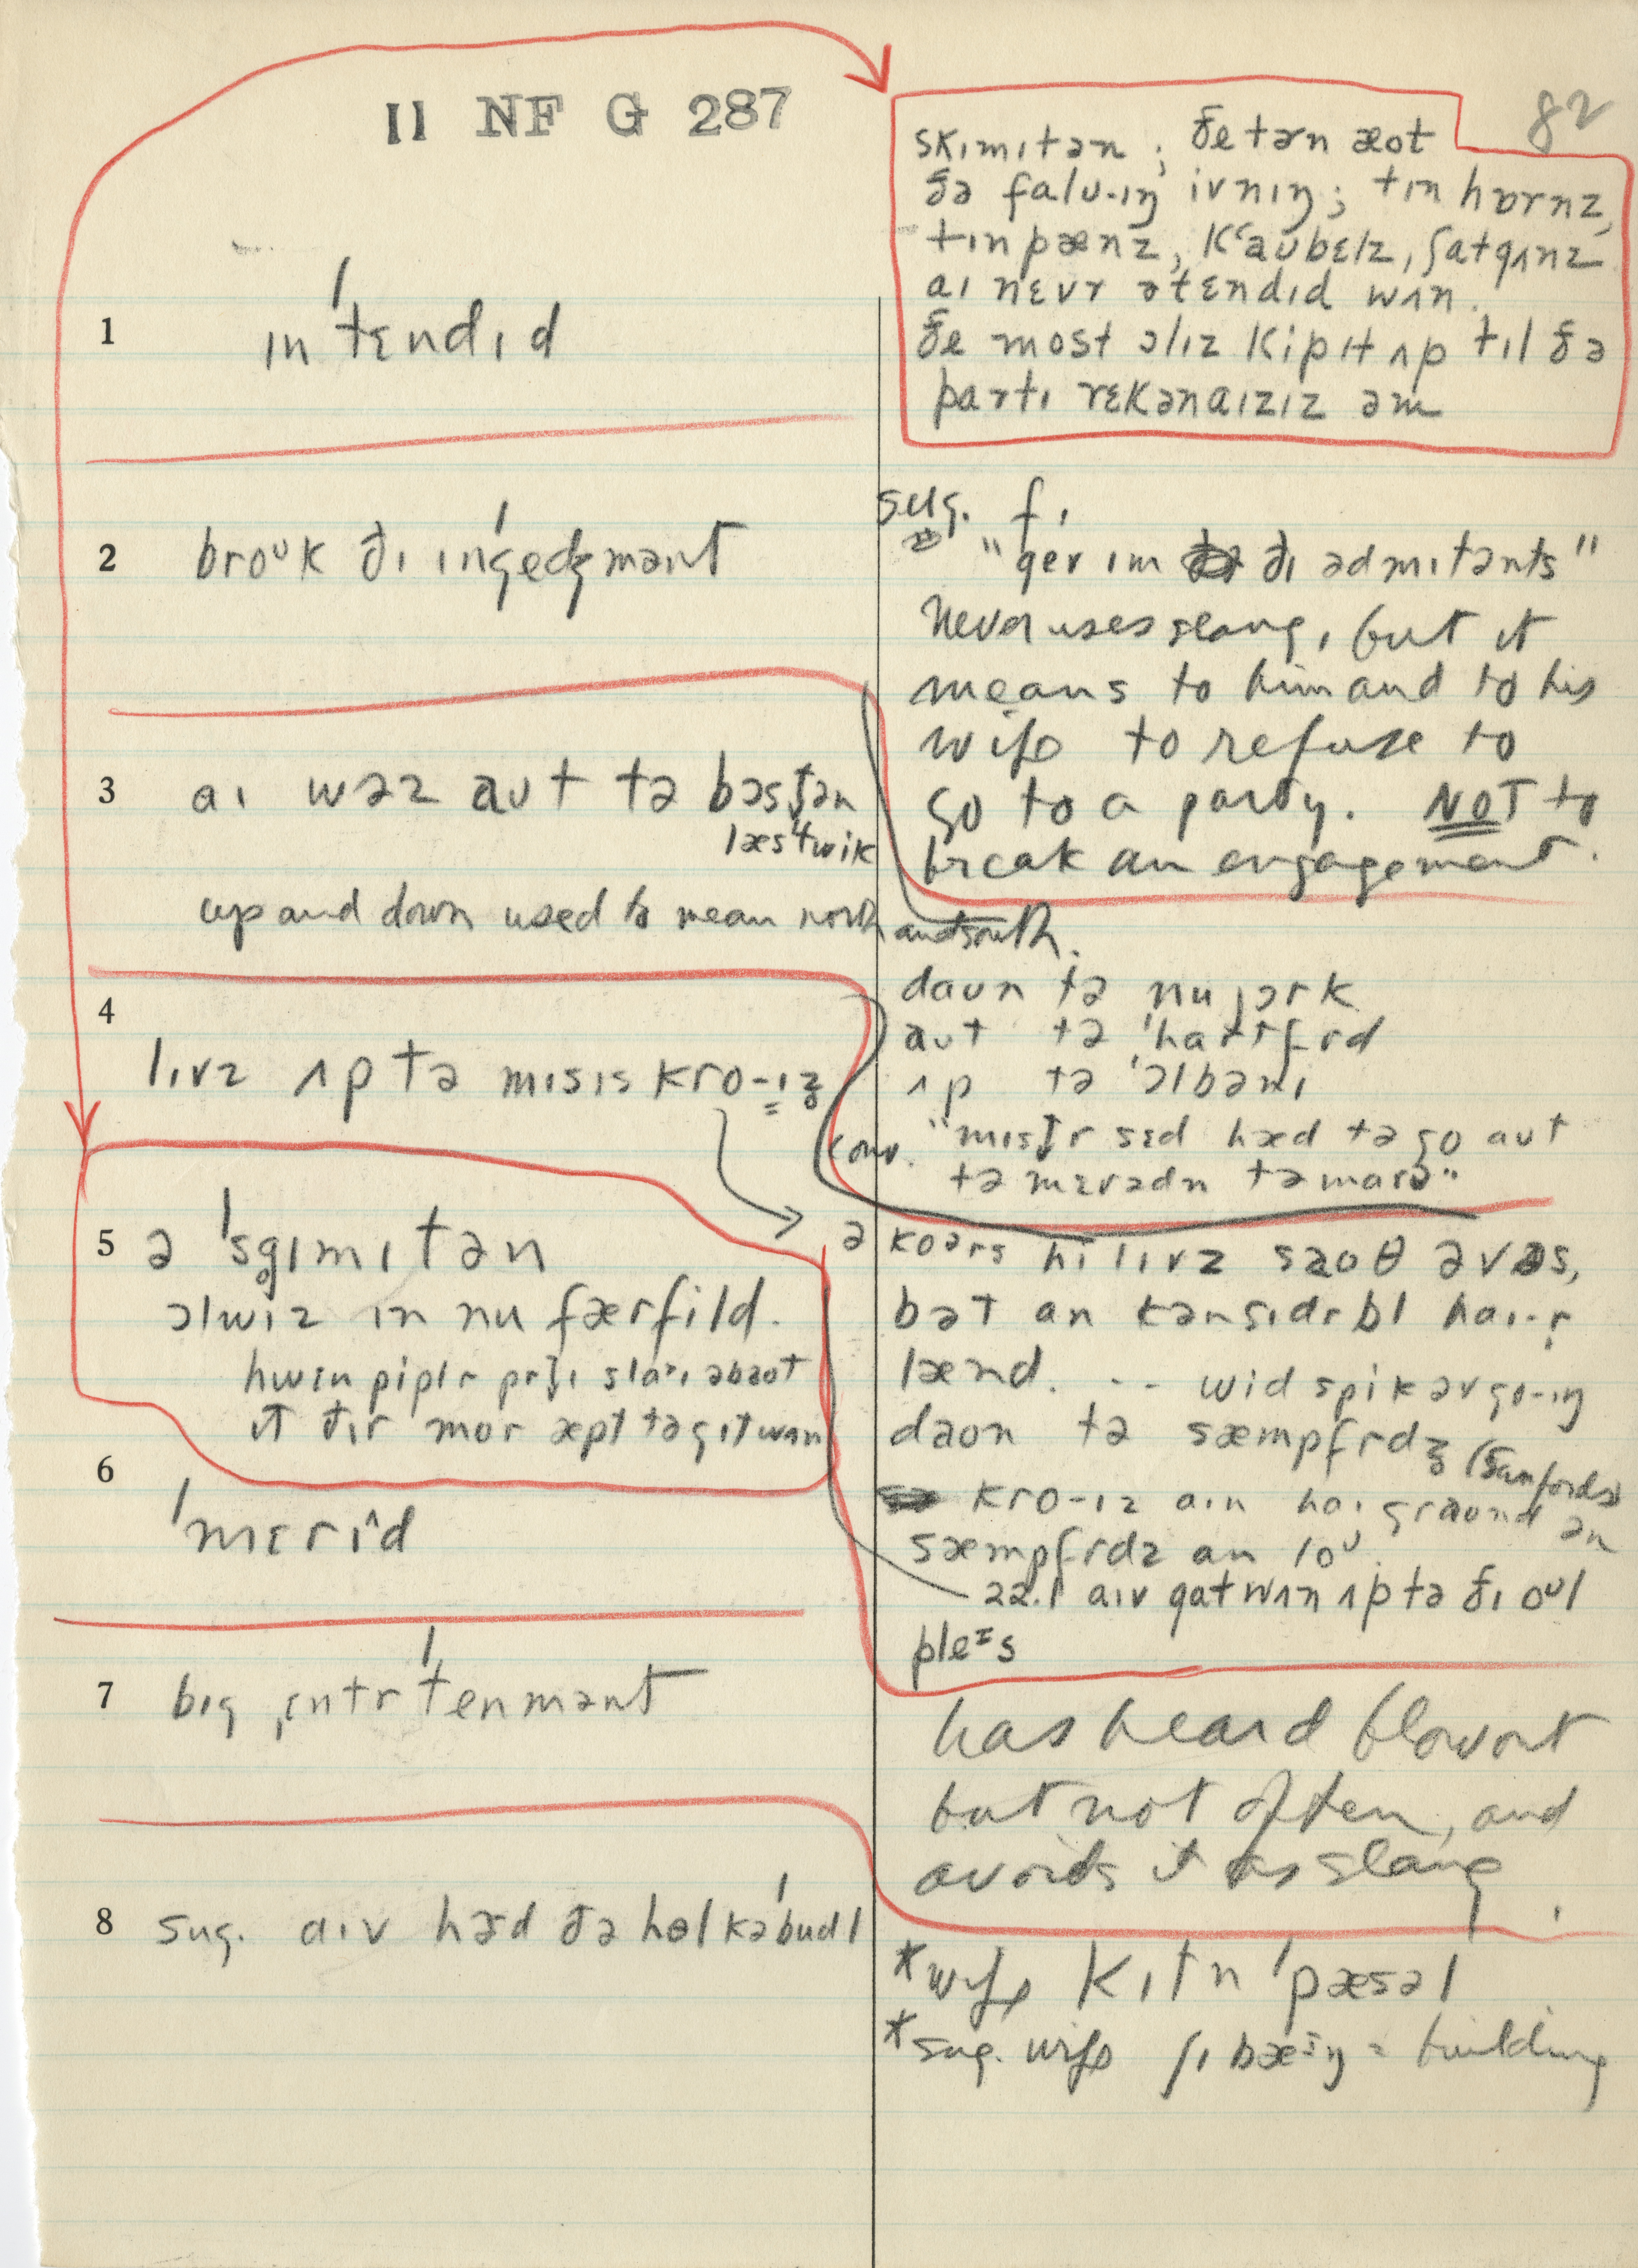 II NF G 287
82
skɪmɪtən ; ðe tərn æot
ðə falʊ-ɪŋ ivnɪŋ ; tɪn hɒrnz,
tɪn pænz, kʻaʊbɛlz, ʃatgʌnz
aɪ nɛvr ətɛndɪd wʌn.
ðe most ɔlɪz kip ɪt ʌp tɪl ðə
partɪ rɛkənaɪzɪz əm
1 ɪnˈtɛndɪd
sug.
2 broᵘk ðɪ ɪnˈgedʒmənt
"gev ɪm ðɪ ədmɪtənts"
Never uses slang, but it
means to him and to his
wife to refuse to
go to a party. NOT to
break an engagement.
3 aɪ wəz aʊt tə bɔstən
læst wik
up and down used to mean north and south.
daʊn tə nu jɔrk
aʊt tə ˈhartfrd
ʌp tə ˈɔlbənɪ
4 lɪvz ʌp tə mɪsɪs kro-ɪz
conv. "mɪstr sɛd hæd tə go aʊt
tə mɛrədn təmarə"
5 ə ˈsgɪmɪtən
ɔlwɪz ɪn nu færfild.
ə koərs hi lɪvz saoθ əv əs,
bət an kənsɪdrbl haɪ-r
lænd. -- wid spik əv go-ɪŋ
daon tə sæmpfrdz (Sanfords)
kro-ɪz aɪn haɪ graond ən
sæmpfrdz an loᵘ.
aɪv gat wʌn ʌp tə ðɪ oᵘl
pleɪs
6 ˈmɛrid
7 bɪg ˌɛntrˈtenmənt
has heard blowout
but not often, and
avoids it as slang
8 sug. aɪv hərd ðə hol kəˈbudl
*wife kɪtn ˈpæsəl
*sug. wife building